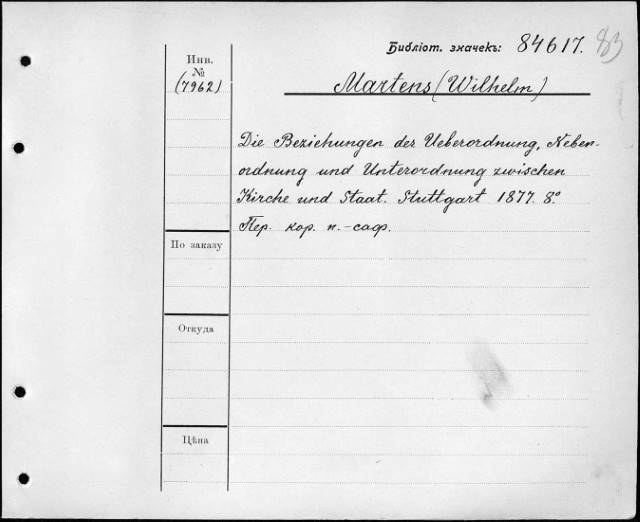 Библіот. значекъ: 84617. 83
Инв.
№
(7962)
Martens (Wilhelm)
Die Beziehungen der Ueberordnung, Neben-
ordnung und Unterordnung zwischen
Kirche und Staat. Stuttgart 1877. 8°
Пер. кор. п.-саф.
По заказу
Откуда
Цѣна